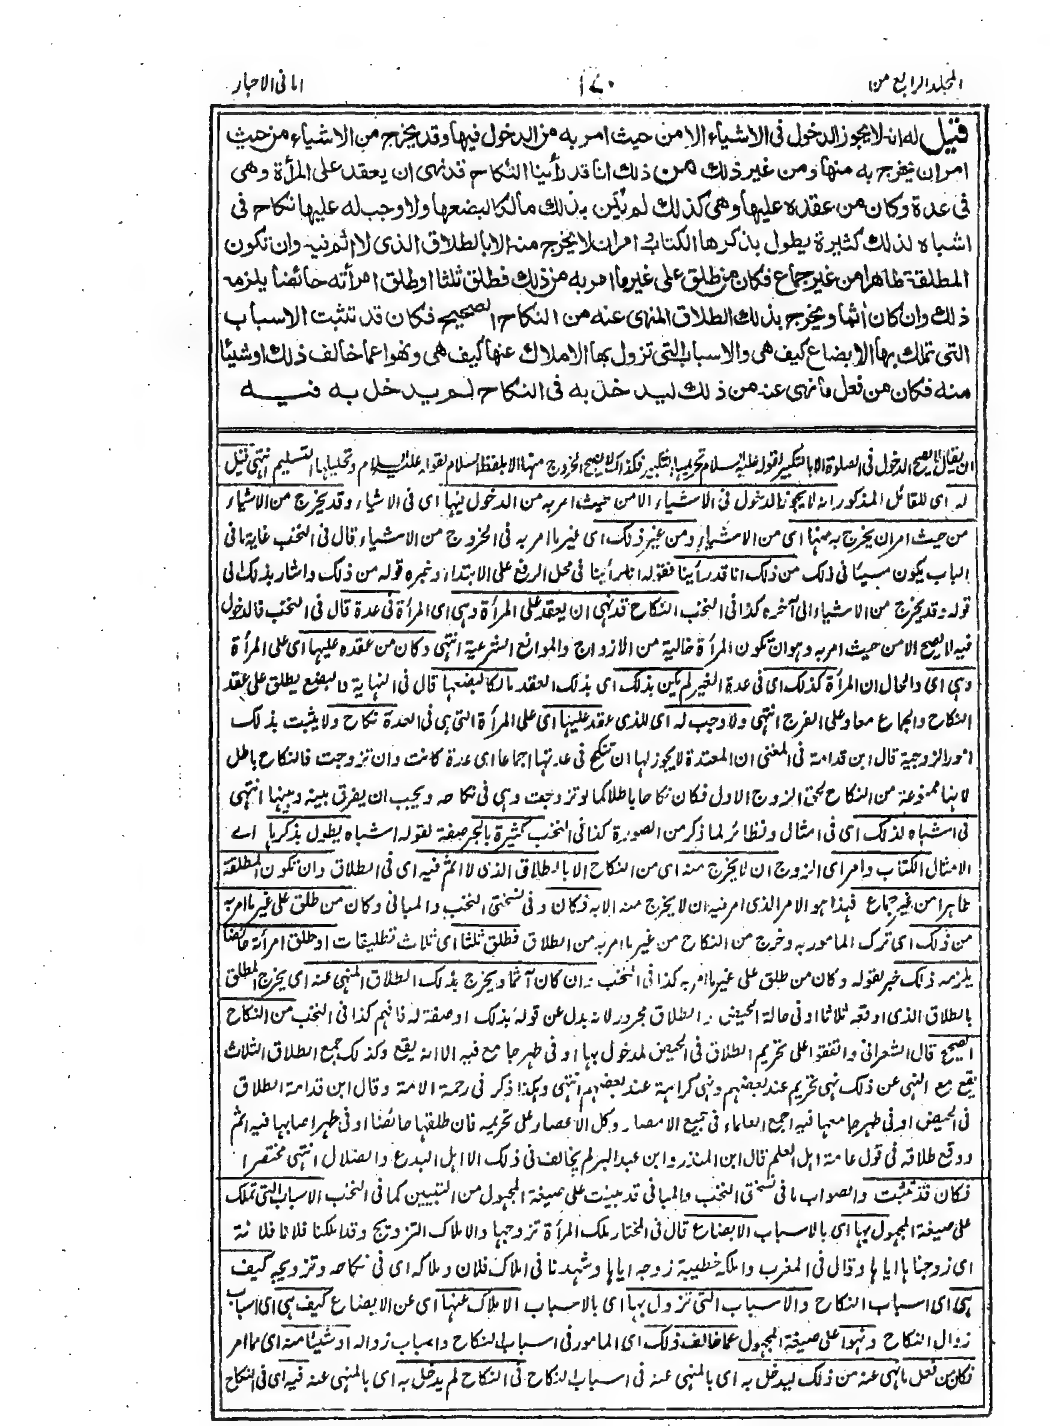 المجلد الرابع من
١٧٠
امانی الاحبار
قيل له انه لا يجوز الدخول فى الاشياء الا من حيث امر به من الدخول فيها وقد يخرج من الاشياء من حيث
امر ان يخرج به منها ومن غير ذلك فمن ذلك انا قد رأينا النكاح قد نهى ان يعقد على المرأة وهى
فى عدة وكان من عقده عليها وهى كذلك لم يكن بذلك مالكا لبضعها ولا وجب له عليها نكاح فى
اشباه لذلك كثيرة يطول بذكرها الكتاب وامر ان لا يخرج منه الا بالطلاق الذى لا اثم فيه وان تكون
المطلقة طاهرا من غير جماع فكان من طلق على غير ما امر به من ذلك فطلق ثلثا او طلق امرأته حائضا يلزمه
ذلك وان كان اثما ويخرج بذلك الطلاق المنهى عنه من النكاح الصحيح فكان قد تثبت الاسباب
التى تملك بها الابضاع كيف هى والاسباب التى تزول بها الاملاك عنها كيف هى ونهوا عما خالف ذلك او شيئا
منه فكان من فعل ما نهى عنه من ذلك ليدخل به فى النكاح لم يدخل به فيه
ان يقال لا يصح الدخول فى الصلوة الا بالتكبير لقوله عليه السلام تحريمها التكبير فكذلك لا يصح الخروج منها الا بلفظ السلام لقوله عليه السلام وتحليلها التسليم انتهى قيل
له اى للقائل المذكور انه لا يجوز الدخول فى الاشياء الا من حيث امر به من الدخول فيها اى فى الاشياء وقد يخرج من الاشياء
من حيث امر ان يخرج به منها اى من الاشياء ومن غير ذلك اى غير ما امر به فى الخروج من الاشياء قال فى النخب غاية ما فى
الباب يكون مسيئا فى ذلك من ذلك انا قد رأينا فقوله انا رأينا فى محل الرفع على الابتداء وخبره قوله من ذلك واشار بذلك الى
قوله وقد يخرج من الاشياء الى آخره كذا فى النخب النكاح قد نهى ان يعقد على المرأة وهى اى المرأة فى عدة قال فى النخب فالدخول
فيه لا يصح الا من حيث امر به وهو ان تكون المرأة خالية من الازواج والموانع الشرعية انتهى وكان من عقده عليها اى على المرأة
وهى اى والحال ان المرأة كذلك اى فى عدة الغير لم يكن بذلك اى بذلك العقد مالكا لبضعها قال فى النهاية والبضع يطلق على عقد
النكاح والجماع معا وعلى الفرج انتهى ولا وجب له اى للذى عقد عليها اى على المرأة التى هى فى العدة نكاح ولا يثبت بذلك
امور الزوجية قال ابن قدامة فى المغنى ان المعتدة لا يجوز لها ان تنكح فى عدتها اجماعا اى عدة كانت وان تزوجت فالنكاح باطل
لانها ممنوعة من النكاح لحق الزوج الاول فكان نكاحا باطلا كما لو تزوجت وهى فى نكاحه ويجب ان يفرق بينه وبينها انتهى
فى اشباه لذلك اى فى امثال ونظائر لما ذكر من الصورة كذا فى النخب كثيرة بالجر صفة لقوله اشباه يطول بذكرها اے
الامثال الكتاب وامر اى الزوج ان لا يخرج منه اى من النكاح الا بالطلاق الذى لا اثم فيه اى فى الطلاق وان تكون المطلقة
طاهرا من غير جماع فهذا هو الامر الذى امر فيه ان لا يخرج منه الا به فكان وفى نسختى النخب والمبانى وكان من طلق على غير ما امر به
من ذلك اى ترك المامور به وخرج من النكاح من غير ما امر به من الطلاق فطلق ثلثا اى ثلاث تطليقات او طلق امرأته حائضا
يلزمه ذلك خبر لقوله وكان من طلق على غير ما امر به كذا فى النخب وان كان آثما ويخرج بذلك الطلاق المنهى عنه اى يخرج المطلق
بالطلاق الذى اوقعه ثلاثا او فى حالة الحيض والطلاق مجرور لانه بدل عن قوله بذلك او صفة له فافهم كذا فى النخب من النكاح
الصحيح قال الشعرانى واتفقوا على تحريم الطلاق فى الحيض لمدخول بها او فى طهر جامع فيه الا انه يقع وكذلك جمع الطلاق الثلاث
يقع مع النهى عن ذلك نهى تحريم عند بعضهم ونهى كراهة عند بعضهم انتهى وهكذا ذكر فى رحمة الامة وقال ابن قدامة الطلاق
فى الحيض او فى طهر جامعها فيه اجمع العلماء فى جميع الامصار وكل الاعصار على تحريمه فان طلقها حائضا او فى طهر اصابها فيه اثم
ووقع طلاقه فى قول عامة اهل العلم قال ابن المنذر وابن عبد البر لم يخالف فى ذلك الا اهل البدع والضلال انتهى مختصرا
فكان قد تثبت والصواب ما فى نسختى النخب والمبانى قد بينت على صيغة المجهول من التبيين كما فى النخب الاسباب التى تملك
على صيغة المجهول بها اى بالاسباب الابضاع قال فى المختار ملك المرأة تزوجها والاملاك التزويج وقد املكنا فلانا فلانة
اى زوجناه اياها وقال فى المغرب واملكه خطيبة زوجه اياها وشهدنا فى املاك فلان وملاكه اى فى نكاحه وتزويجه كيف
هى اى اسباب النكاح والاسباب التى تزول بها اى بالاسباب الاملاك عنها اى عن الابضاع كيف هى اى اسباب
زوال النكاح ونهوا على صيغة المجهول عما خالف ذلك اى المامور فى اسباب النكاح واسباب زواله او شيئا منه اى مما امر
فكان من فعل ما نهى عنه من ذلك ليدخل به اى بالمنهى عنه فى اسباب النكاح فى النكاح لم يدخل به اى بالمنهى عنه فيه اى فى النكاح